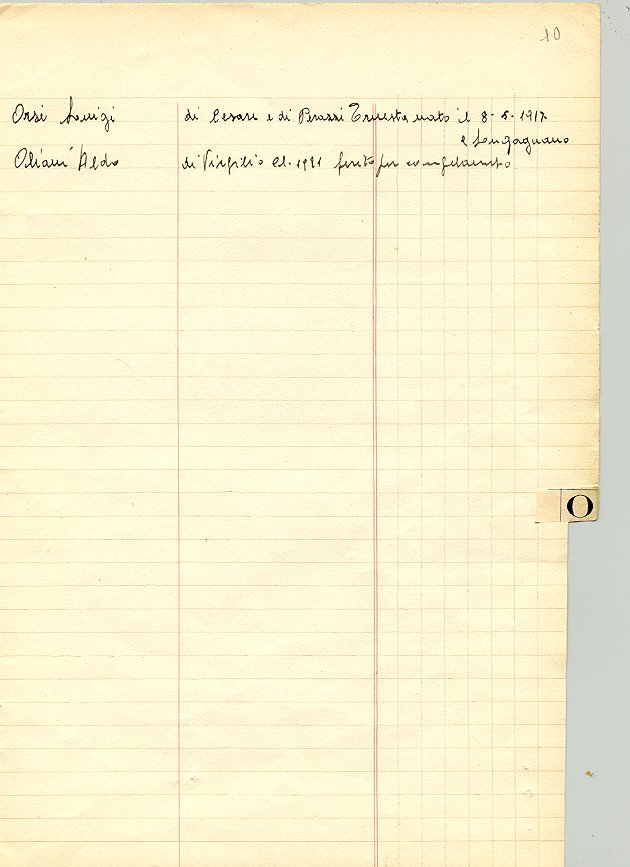 10
Orsi Luigi di Cesare e di Perassi Ernesta nato il 8-5-1917
a Lugagnano
Oliani Aldo di Virgilio cl. 1921 ferito per congelamento
O